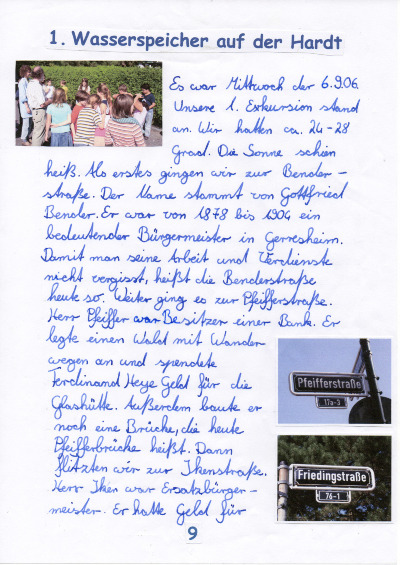 1. Wasserspeicher auf der Hardt
Es war Mittwoch der 6.9.06.
Unsere 1. Exkursion stand
an. Wir hatten ca. 24-28
Grad. Die Sonne schien
heiß. Als erstes gingen wir zur Bender-
straße. Der Name stammt von Gottfried
Bender. Er war von 1878 bis 1904 ein
bedeutender Bürgermeister in Gerresheim.
Damit man seine Arbeit und Verdienste
nicht vergisst, heißt die Benderstraße
heute so. Weiter ging es zur Pfeifferstraße.
Herr Pfeiffer war Besitzer einer Bank. Er
legte einen Wald mit Wander
wegen an und spendete
Ferdinand Heye Geld für die
Glashütte. Außerdem baute er
noch eine Brücke, die heute
Pfeifferbrücke heißt. Dann
flitzten wir zur Ikenstraße.
Herr Iken war Ersatzbürger-
meister. Er hatte Geld für
Pfeifferstraße
17a-3
Friedingstraße
76-1
9